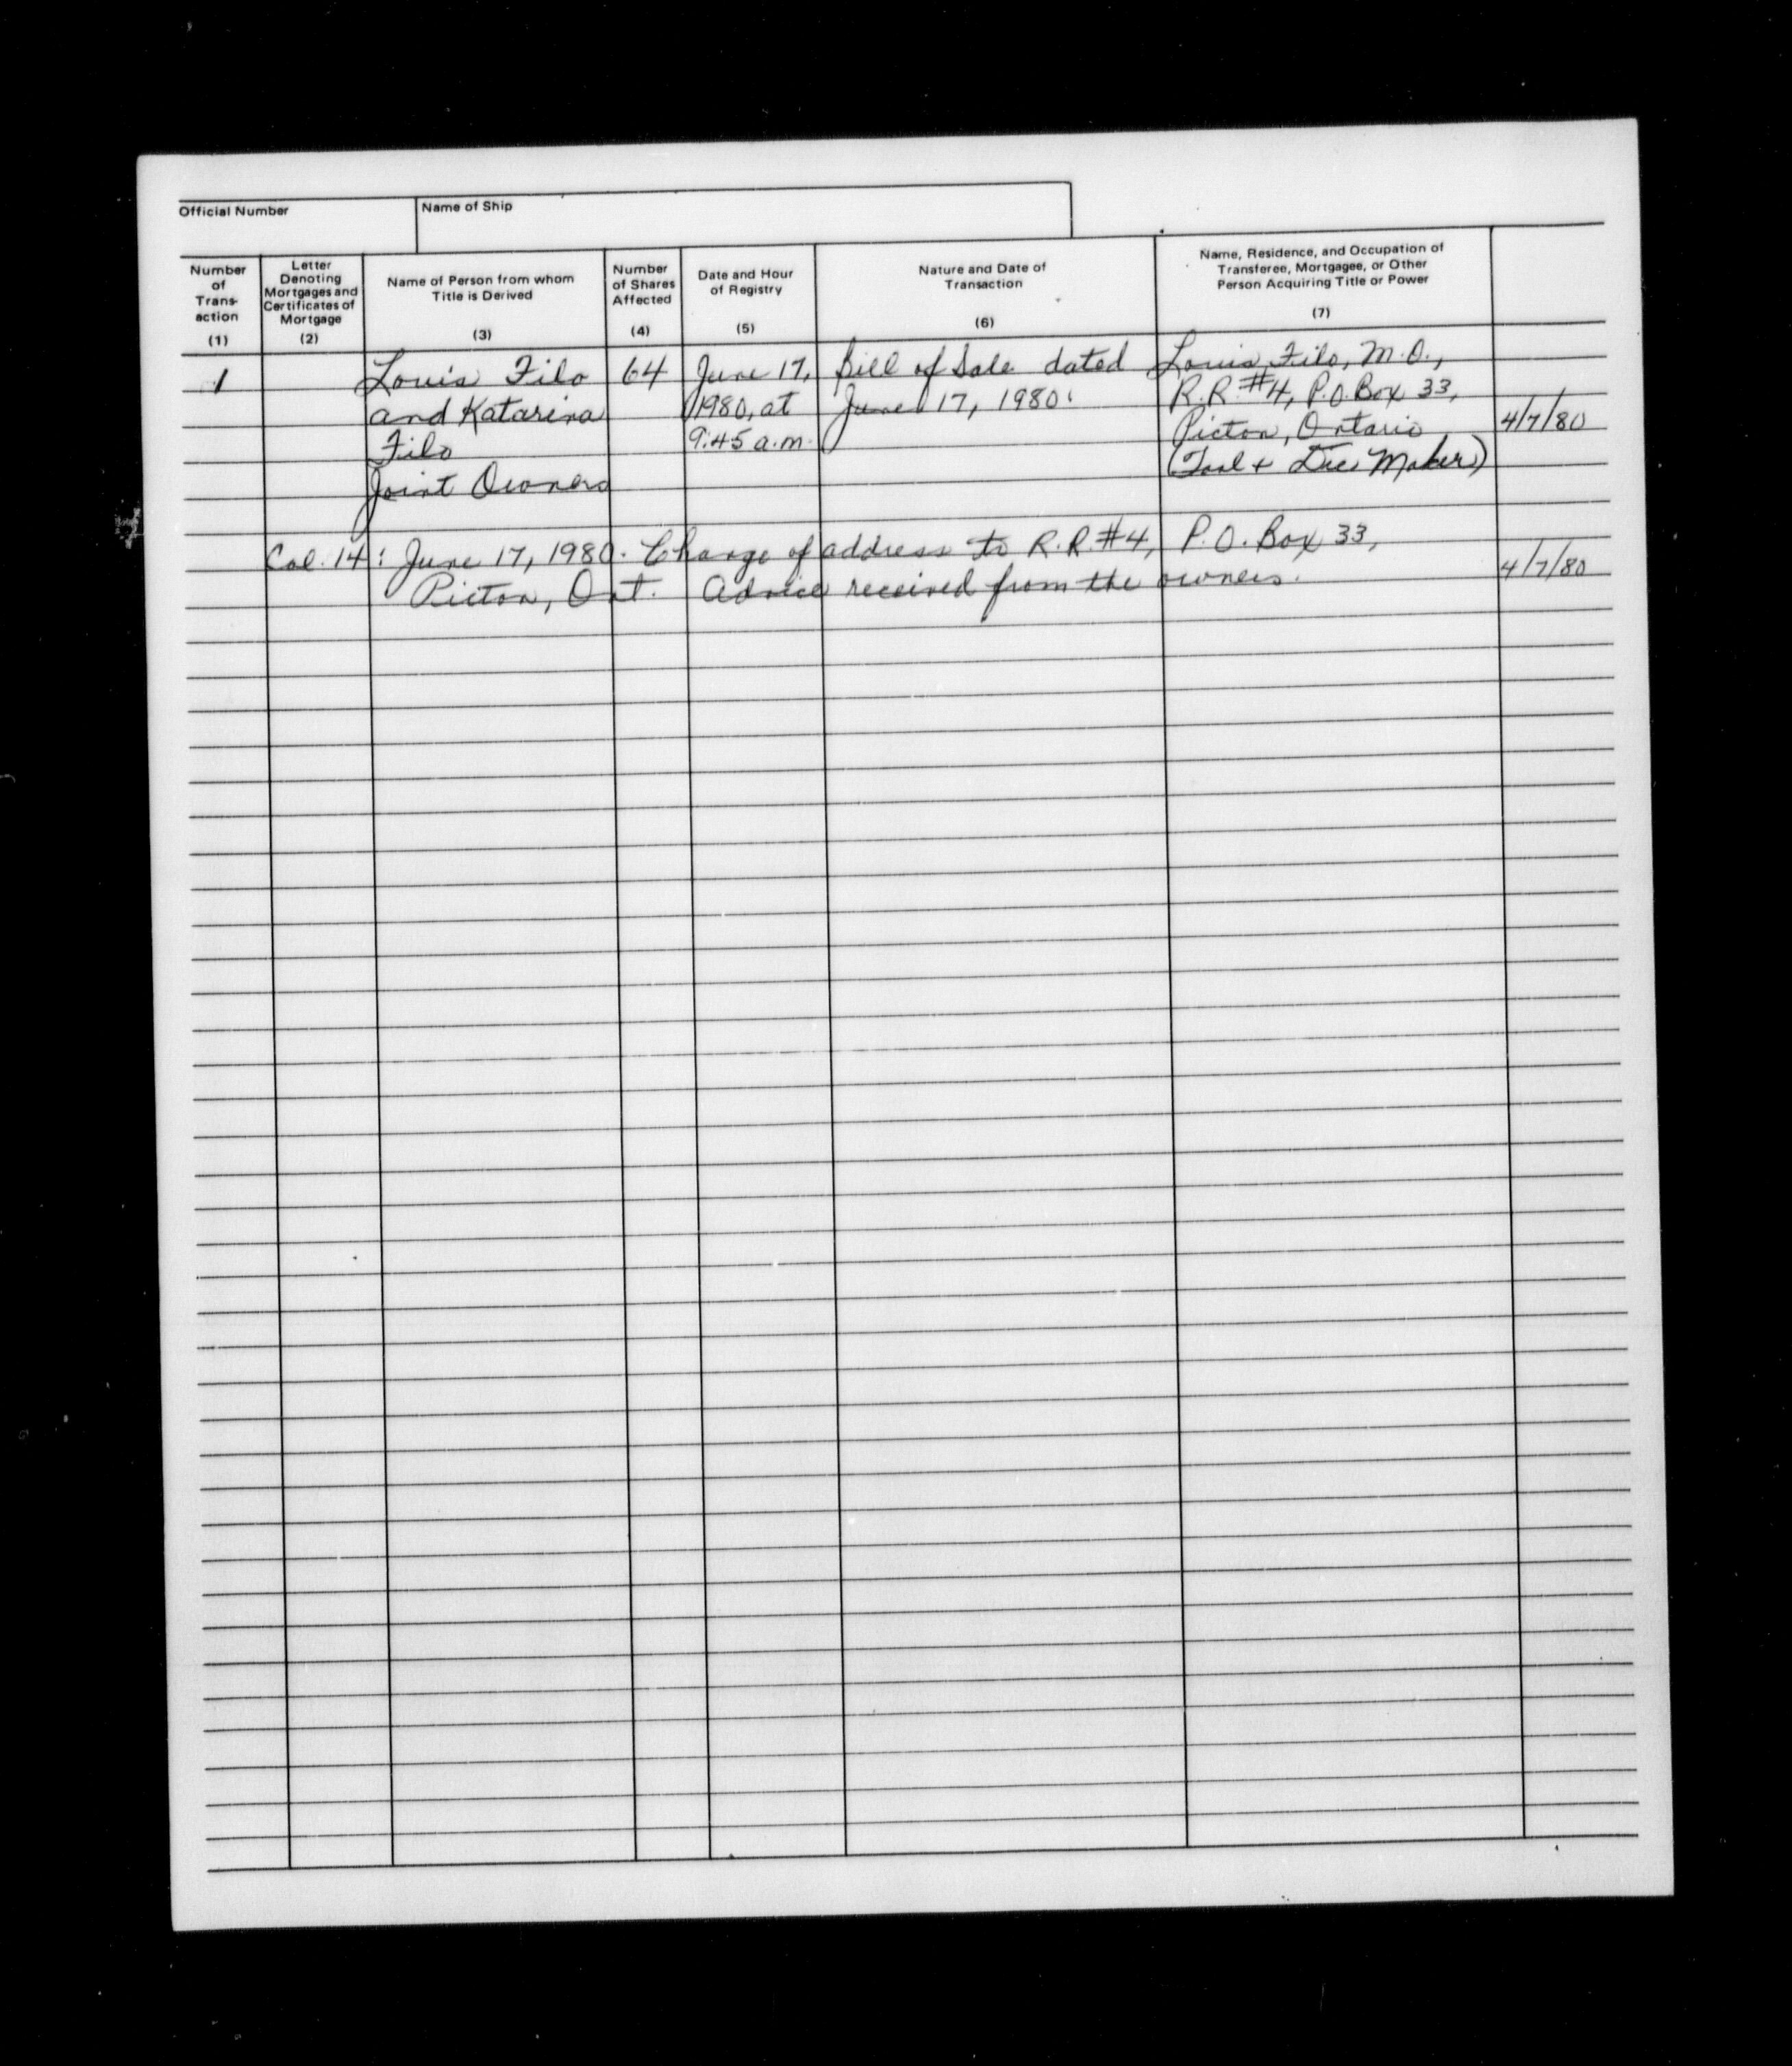 Official Number
Name of Ship
Number of Trans- action (1)
Letter Denoting Mortgages and Certificates of Mortgage (2)
Name of Person from whom Title is Derived (3)
Number of Shares Affected (4)
Date and Hour of Registry (5)
Nature and Date of Transaction (6)
Name, Residence, and Occupation of Transferee, Mortgagee, or Other Person Acquiring Title or Power (7)
1 Louis Filo 64 June 17, Bill of Sale dated Louis Filo, M.O.,
and Katarina 1980, at June 17, 1980. R.R. #4, P.O. Box 33,
Filo 9:45 a.m. Picton, Ontario 4/7/80
Joint Owners (Tool + Die Maker)
Col. 14: June 17, 1980. Change of address to R.R. #4, P.O. Box 33,
Picton, Ont. Advice received from the owners. 4/7/80